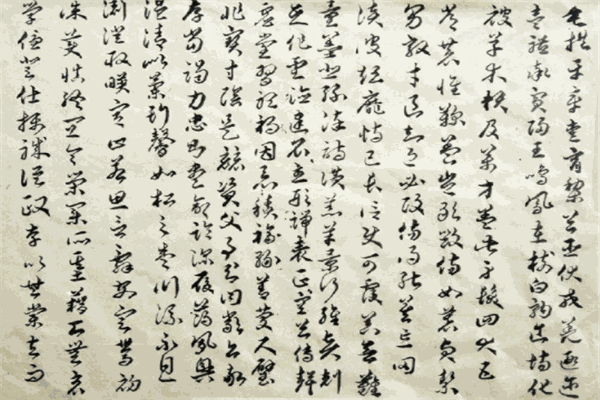 垂拱平章愛育黎首臣伏戎羌遐邇
壹體率賓歸王鳴鳳在樹白駒食場化
被草木賴及萬方蓋此身髮四大五
常恭惟鞠養豈敢毀傷女慕貞絜
男效才良知過必改得能莫忘罔
談彼短靡恃己長信使可覆器欲難
量墨悲絲染詩讚羔羊景行維賢剋
念作聖德建名立形端表正空谷傳聲
虛堂習聽禍因惡積福緣善慶尺璧
非寶寸陰是競資父事君曰嚴與敬
孝當竭力忠則盡命臨深履薄夙興
溫清似蘭斯馨如松之盛川流不息
淵澄取映容止若思言辭安定篤初
誠美慎終宜令榮業所基藉甚無竟
學優登仕攝職從政存以甘棠去而